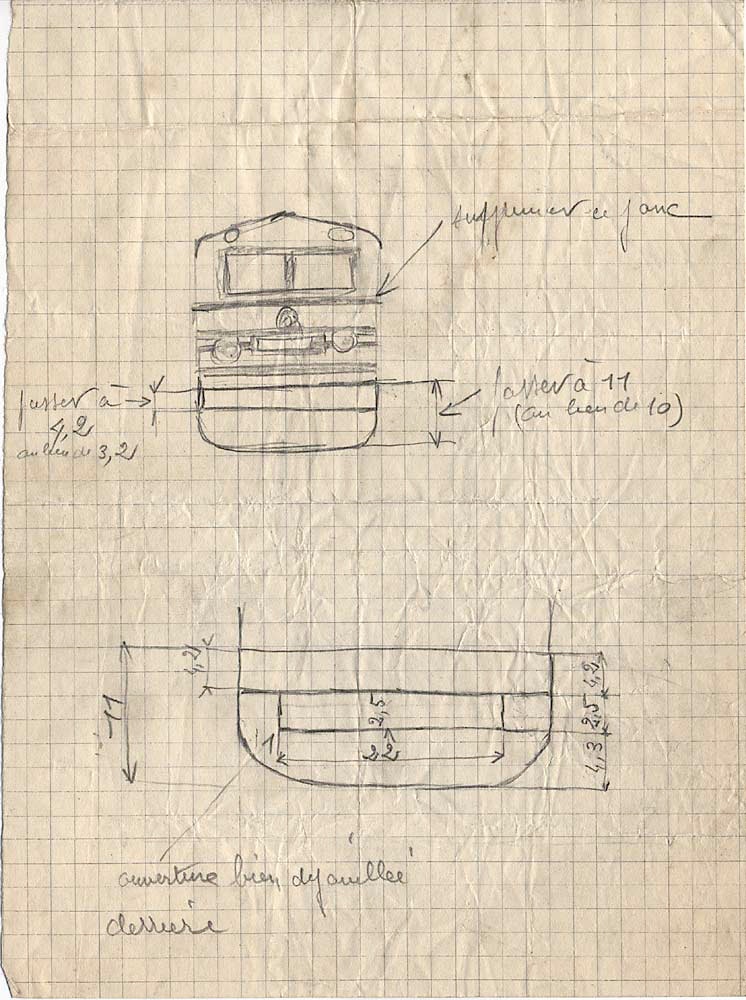 supprimer ce jonc
passer à
4,2
au lieu de 3,2
passer à 11
(au lieu de 10)
4,2
11
2,5
22
1
4,2
2,5
4,3
ouverture bien
derrière